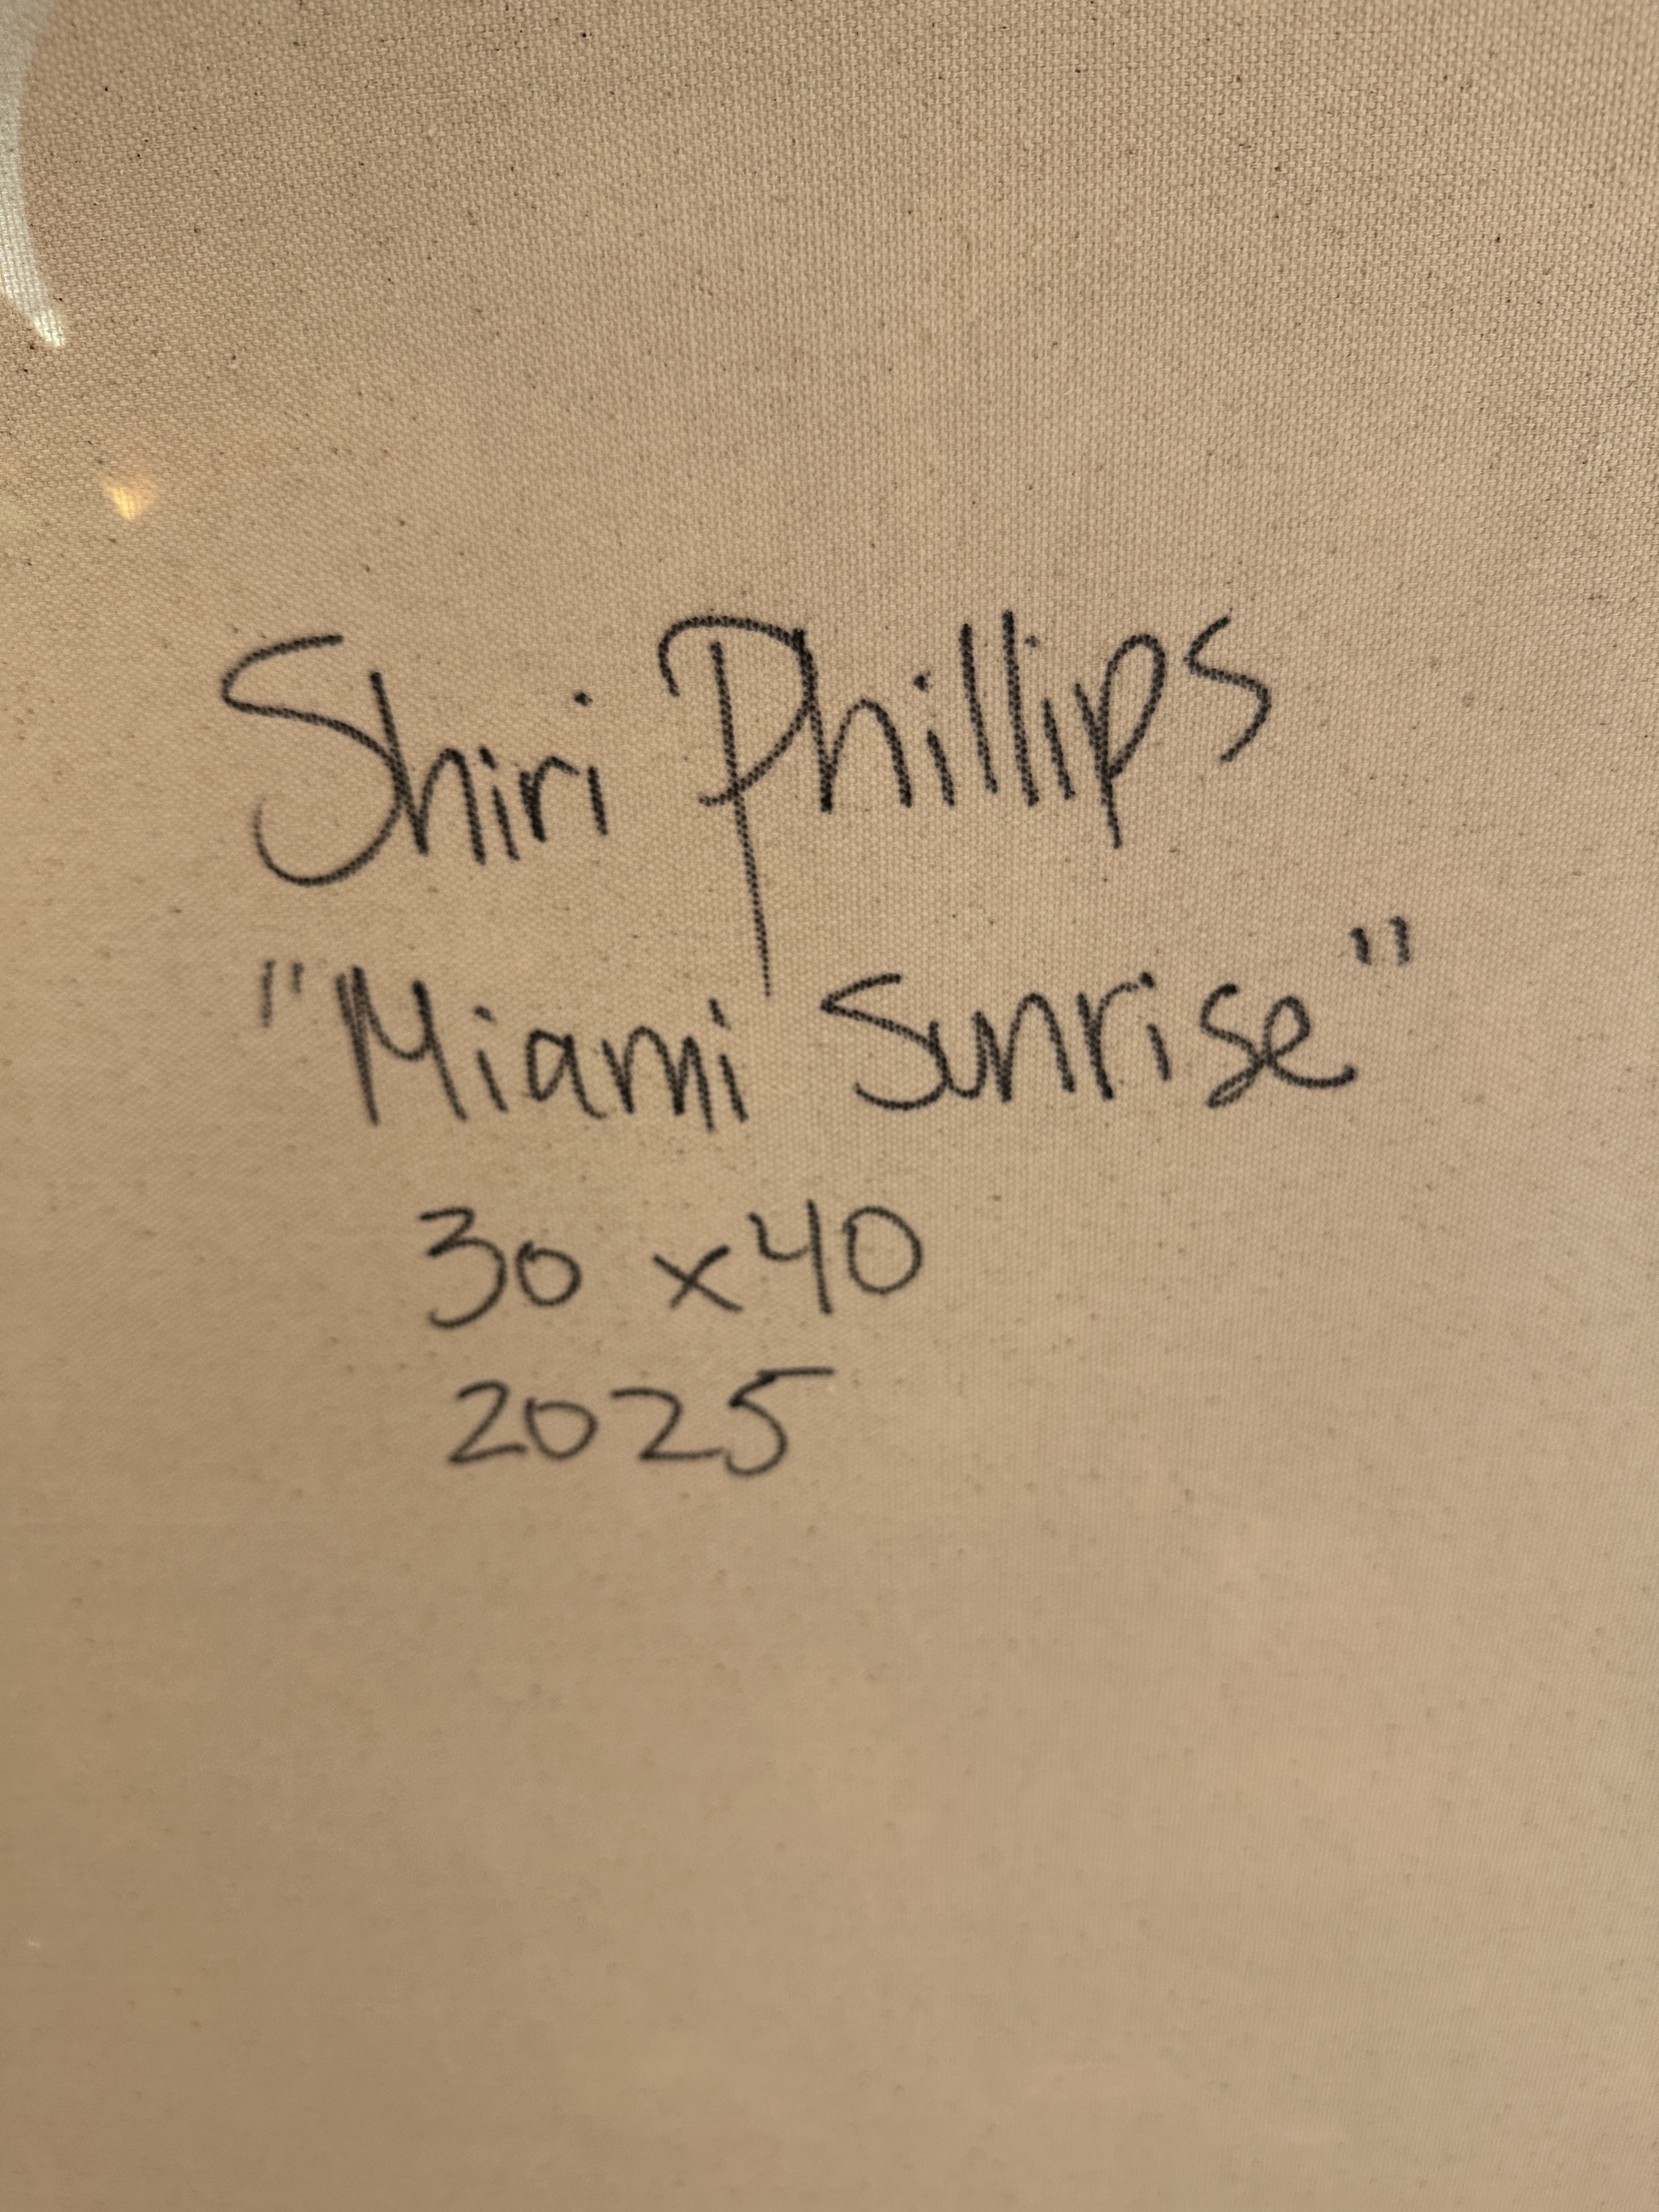 Shiri Phillips
"Miami Sunrise"
30 x 40
2025